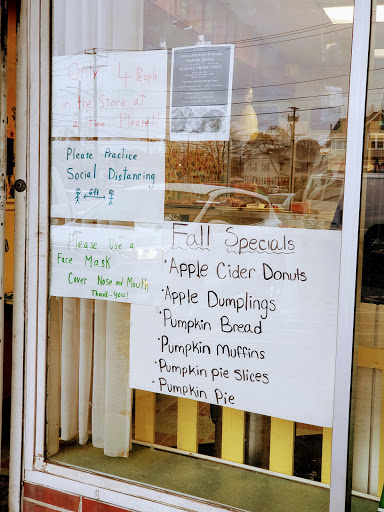 Only 4 People
in the Store at
a time Please!!
Please Practice
Social Distancing
6ft
Please Use a
Face Mask
Cover Nose and Mouth
Thank-you!
Fall Specials
• Apple Cider Donuts
• Apple Dumplings
• Pumpkin Bread
• Pumpkin Muffins
• Pumpkin pie slices
• Pumpkin Pie